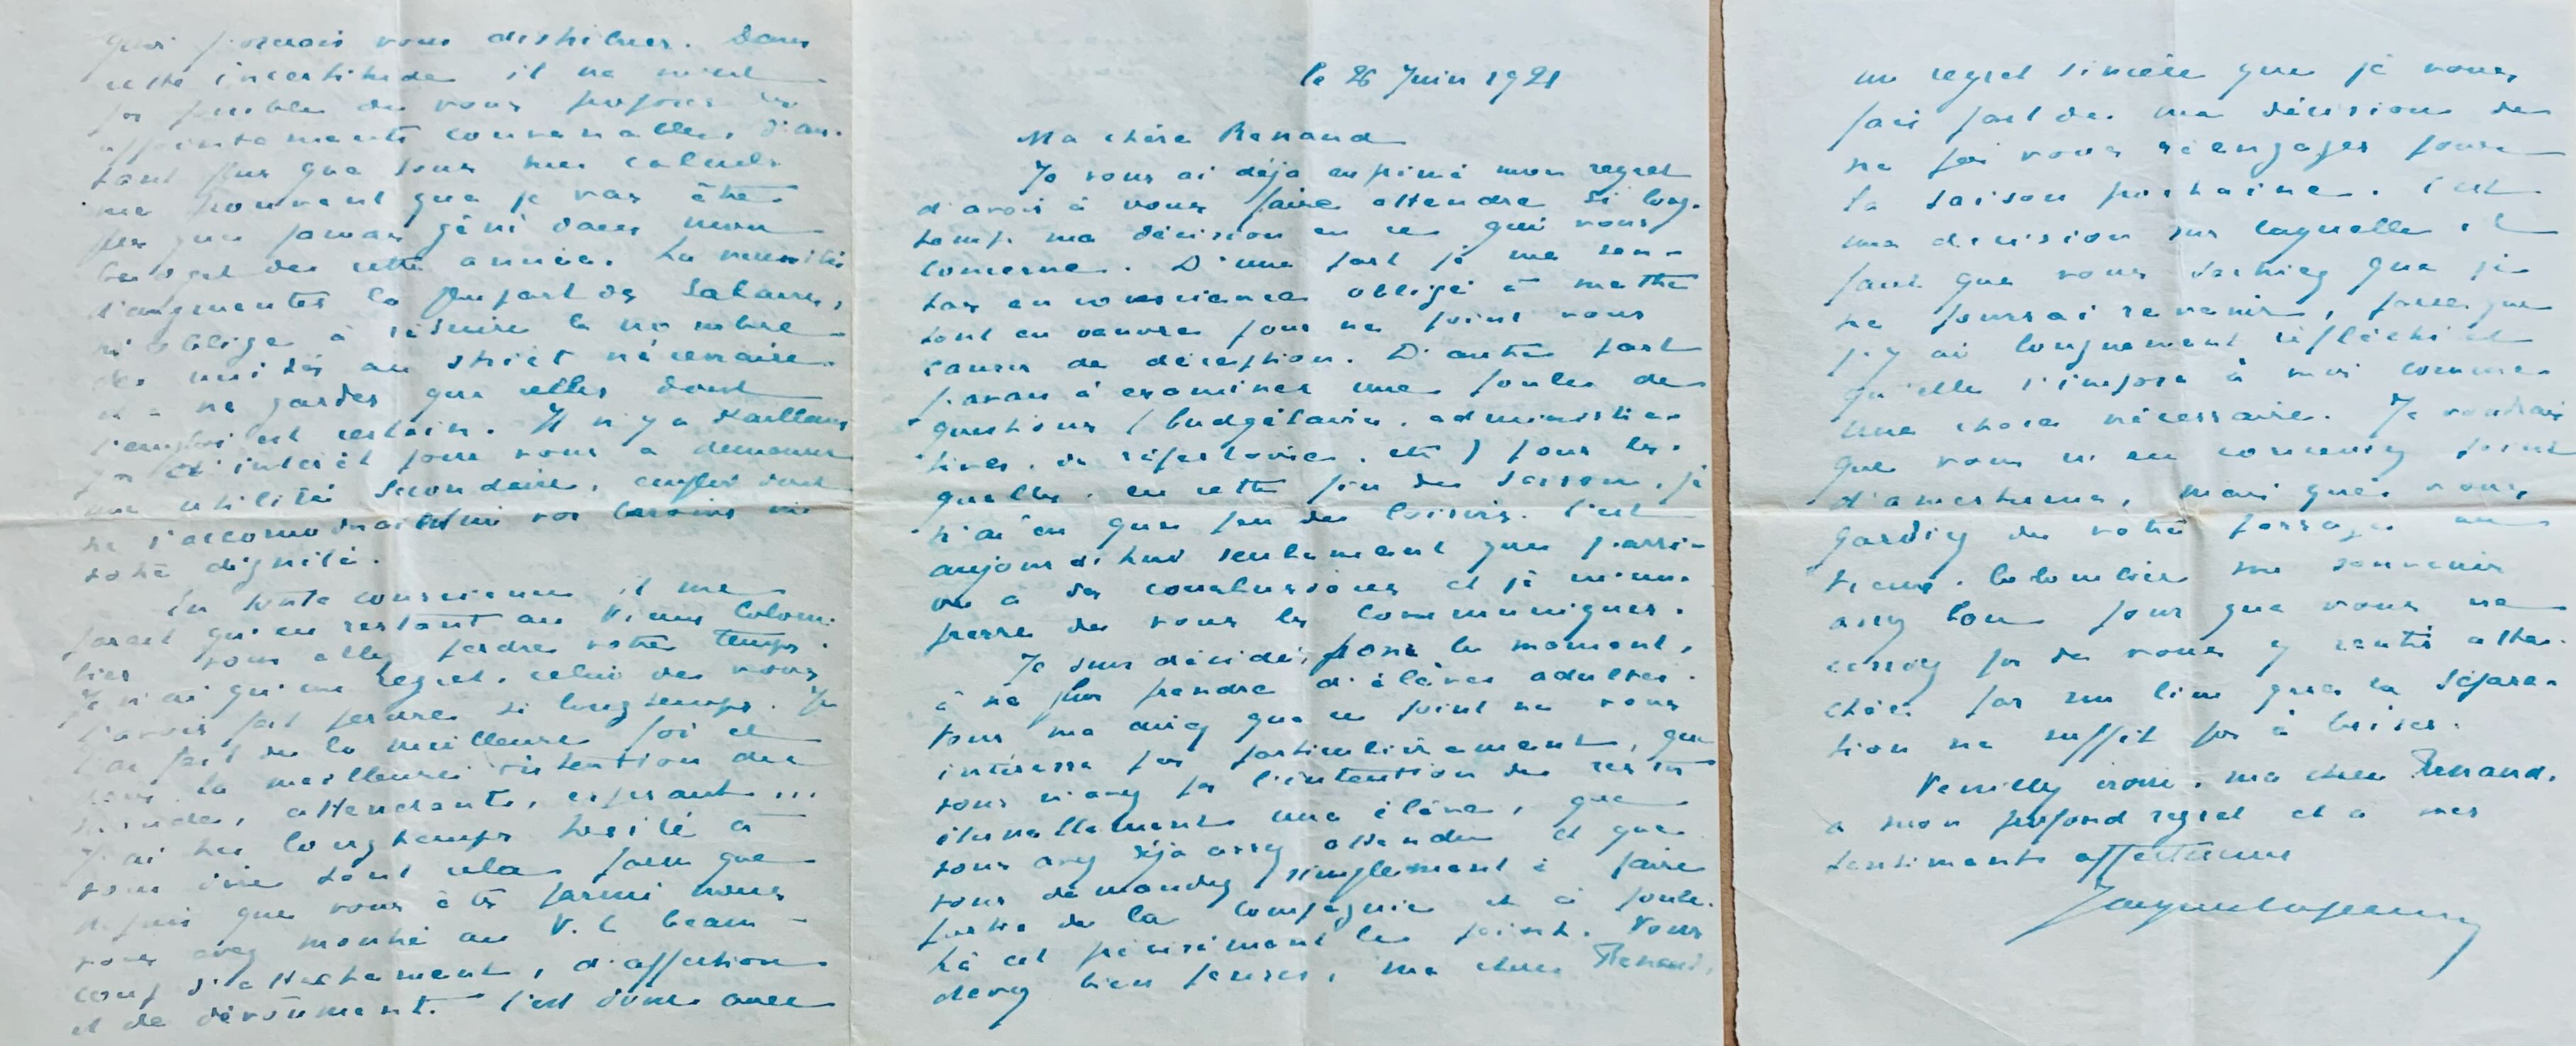 le 26 Juin 1921
Ma chère Renaud
Je vous ai déjà exprimé mon regret
d'avoir à vous faire attendre si long-
temps ma décision en ce qui vous
concerne. D'une part je me sen-
tais en conscience obligé à mettre
tout en oeuvre pour ne point vous
causer de déception. D'autre part
j'avais à examiner une foule de
questions (budgétaires, administra-
tives, de répertoire, etc) pour les-
quelles, en cette fin de saison, je
n'ai eu que peu de loisirs. C'est
aujourd'hui seulement que j'arri-
ve à des conclusions et je m'em-
presse de vous les communiquer.
Je suis décidé, pour le moment,
à ne plus prendre d'élèves adultes.
Vous me direz que ce point ne vous
intéresse pas particulièrement, que
vous n'avez pas l'intention de rester
éternellement une élève, que
vous avez déjà assez attendu et que
vous demandez simplement à faire
partie de la Compagnie et à jouer.
Là est précisément le point. Vous
devez bien penser, ma chère Renaud,
quoi pourrais vous distribuer. Dans
cette incertitude il ne m'est
pas possible de vous proposer des
appointements convenables, d'au-
tant plus que tous mes calculs
me prouvent que je vais être
plus que jamais gêné dans mon
budget de cette année. La nécessité
d'augmenter la plupart des salaires,
m'oblige à réduire le nombre
des unités au strict nécessaire
et à ne garder que celles dont
l'emploi est certain. Il n'y a d'ailleurs
pas d'intérêt pour vous à demeurer
une utilité secondaire, emploi dont
ne s'accomoderaient ni vos besoins ni
votre dignité.
En toute conscience il me
parait qu'en restant au Vieux Colom-
bier vous allez perdre votre temps.
Je n'ai qu'un regret, celui de vous
l'avoir fait perdre si longtemps. Je
l'ai fait de la meilleure foi et
dans la meilleure intention du
monde, attendant, espérant...
J'ai très longtemps hésité à
vous dire tout cela parce que
depuis que vous êtes parmi nous
vous avez montré au V. C beau-
coup d'attachement, d'affection
et de dévoûment. C'est donc avec
un regret sincère que je vous
fais part de ma décision de
ne pas vous réengager pour
la saison prochaine. C'est
une décision sur laquelle il
faut que vous sachiez que je
ne pourrai revenir, parce que
j'y ai longuement réfléchi et
qu'elle s'impose à moi comme
une chose nécessaire. Je voudrais
que vous n'en conceviez point
d'amertume, mais que vous
gardiez de votre passage au
Vieux-Colombier un souvenir
assez bon pour que vous ne
cessiez pas de vous y sentir atta-
chée par un lien que la sépara-
tion ne suffit pas à briser.
Veuillez croire, ma chère Renaud,
à mon profond regret et à mes
sentiments affectueux
Jacques Copeau